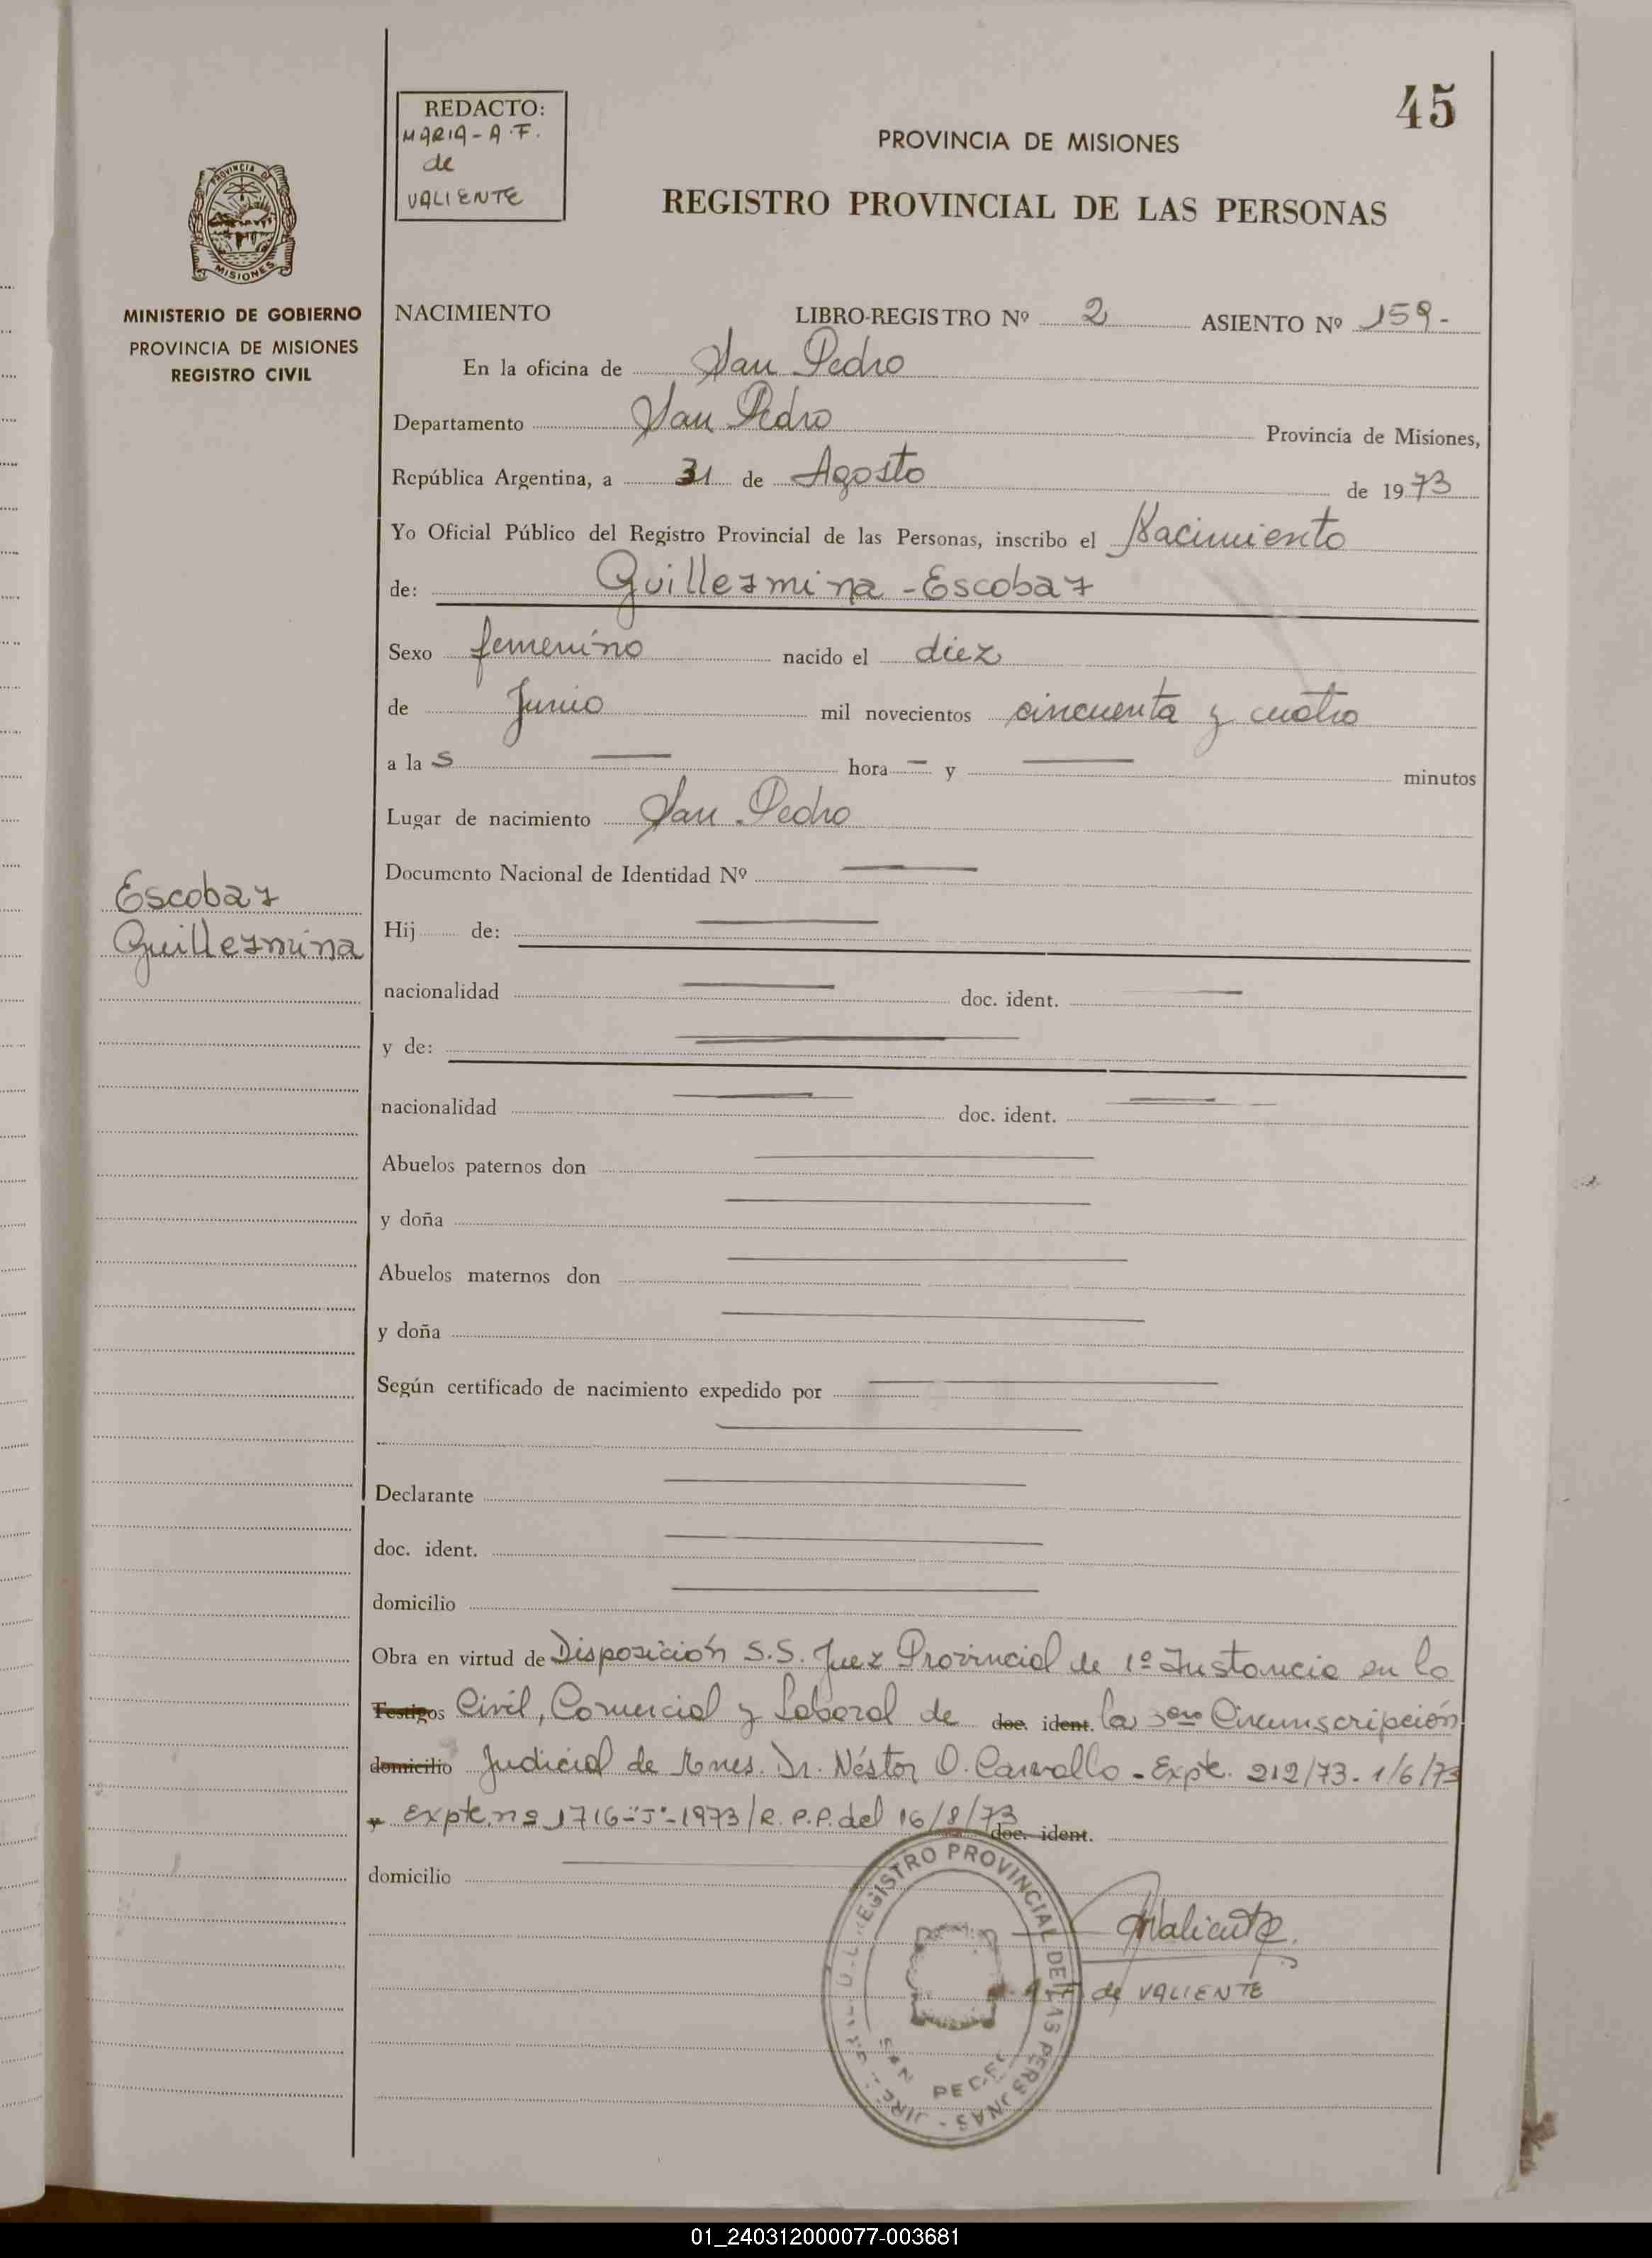 45
REDACTO:
MARIA - A. F.
de
VALIENTE
PROVINCIA DE MISIONES
REGISTRO PROVINCIAL DE LAS PERSONAS
PROVINCIA DE
MISIONES
MINISTERIO DE GOBIERNO
PROVINCIA DE MISIONES
REGISTRO CIVIL
NACIMIENTO LIBRO-REGISTRO Nº 2 ASIENTO Nº 159-
En la oficina de San Pedro
Departamento San Pedro Provincia de Misiones,
República Argentina, a 31 de Agosto de 1973
Yo Oficial Público del Registro Provincial de las Personas, inscribo el Nacimiento
de: Guillermina - Escobar
Sexo femenino nacido el diez
de Junio mil novecientos cincuenta y cuatro
a la s hora y minutos
Lugar de nacimiento San Pedro
Documento Nacional de Identidad Nº
Escobar
Guillermina
Hij de:
nacionalidad doc. ident.
y de:
nacionalidad doc. ident.
Abuelos paternos don
y doña
Abuelos maternos don
y doña
Según certificado de nacimiento expedido por
Declarante
doc. ident.
domicilio
Obra en virtud de Disposición S.S. Juez Provincial de 1º Instancia en lo
Testigos Civil, Comercial y Laboral de doc. ident. la 3era Circunscripción
domicilio Judicial de Mnes. Dr. Néstor O. Carvallo - Expte. 212/73 - 1/6/73
y expte. nº 1716-"J"-1973/R. P.P. del 16/8/73 doc. ident.
domicilio
REGISTRO PROVINCIAL DE LAS PERSONAS
SAN PEDRO
Valiente.
de VALIENTE
01_240312000077-003681